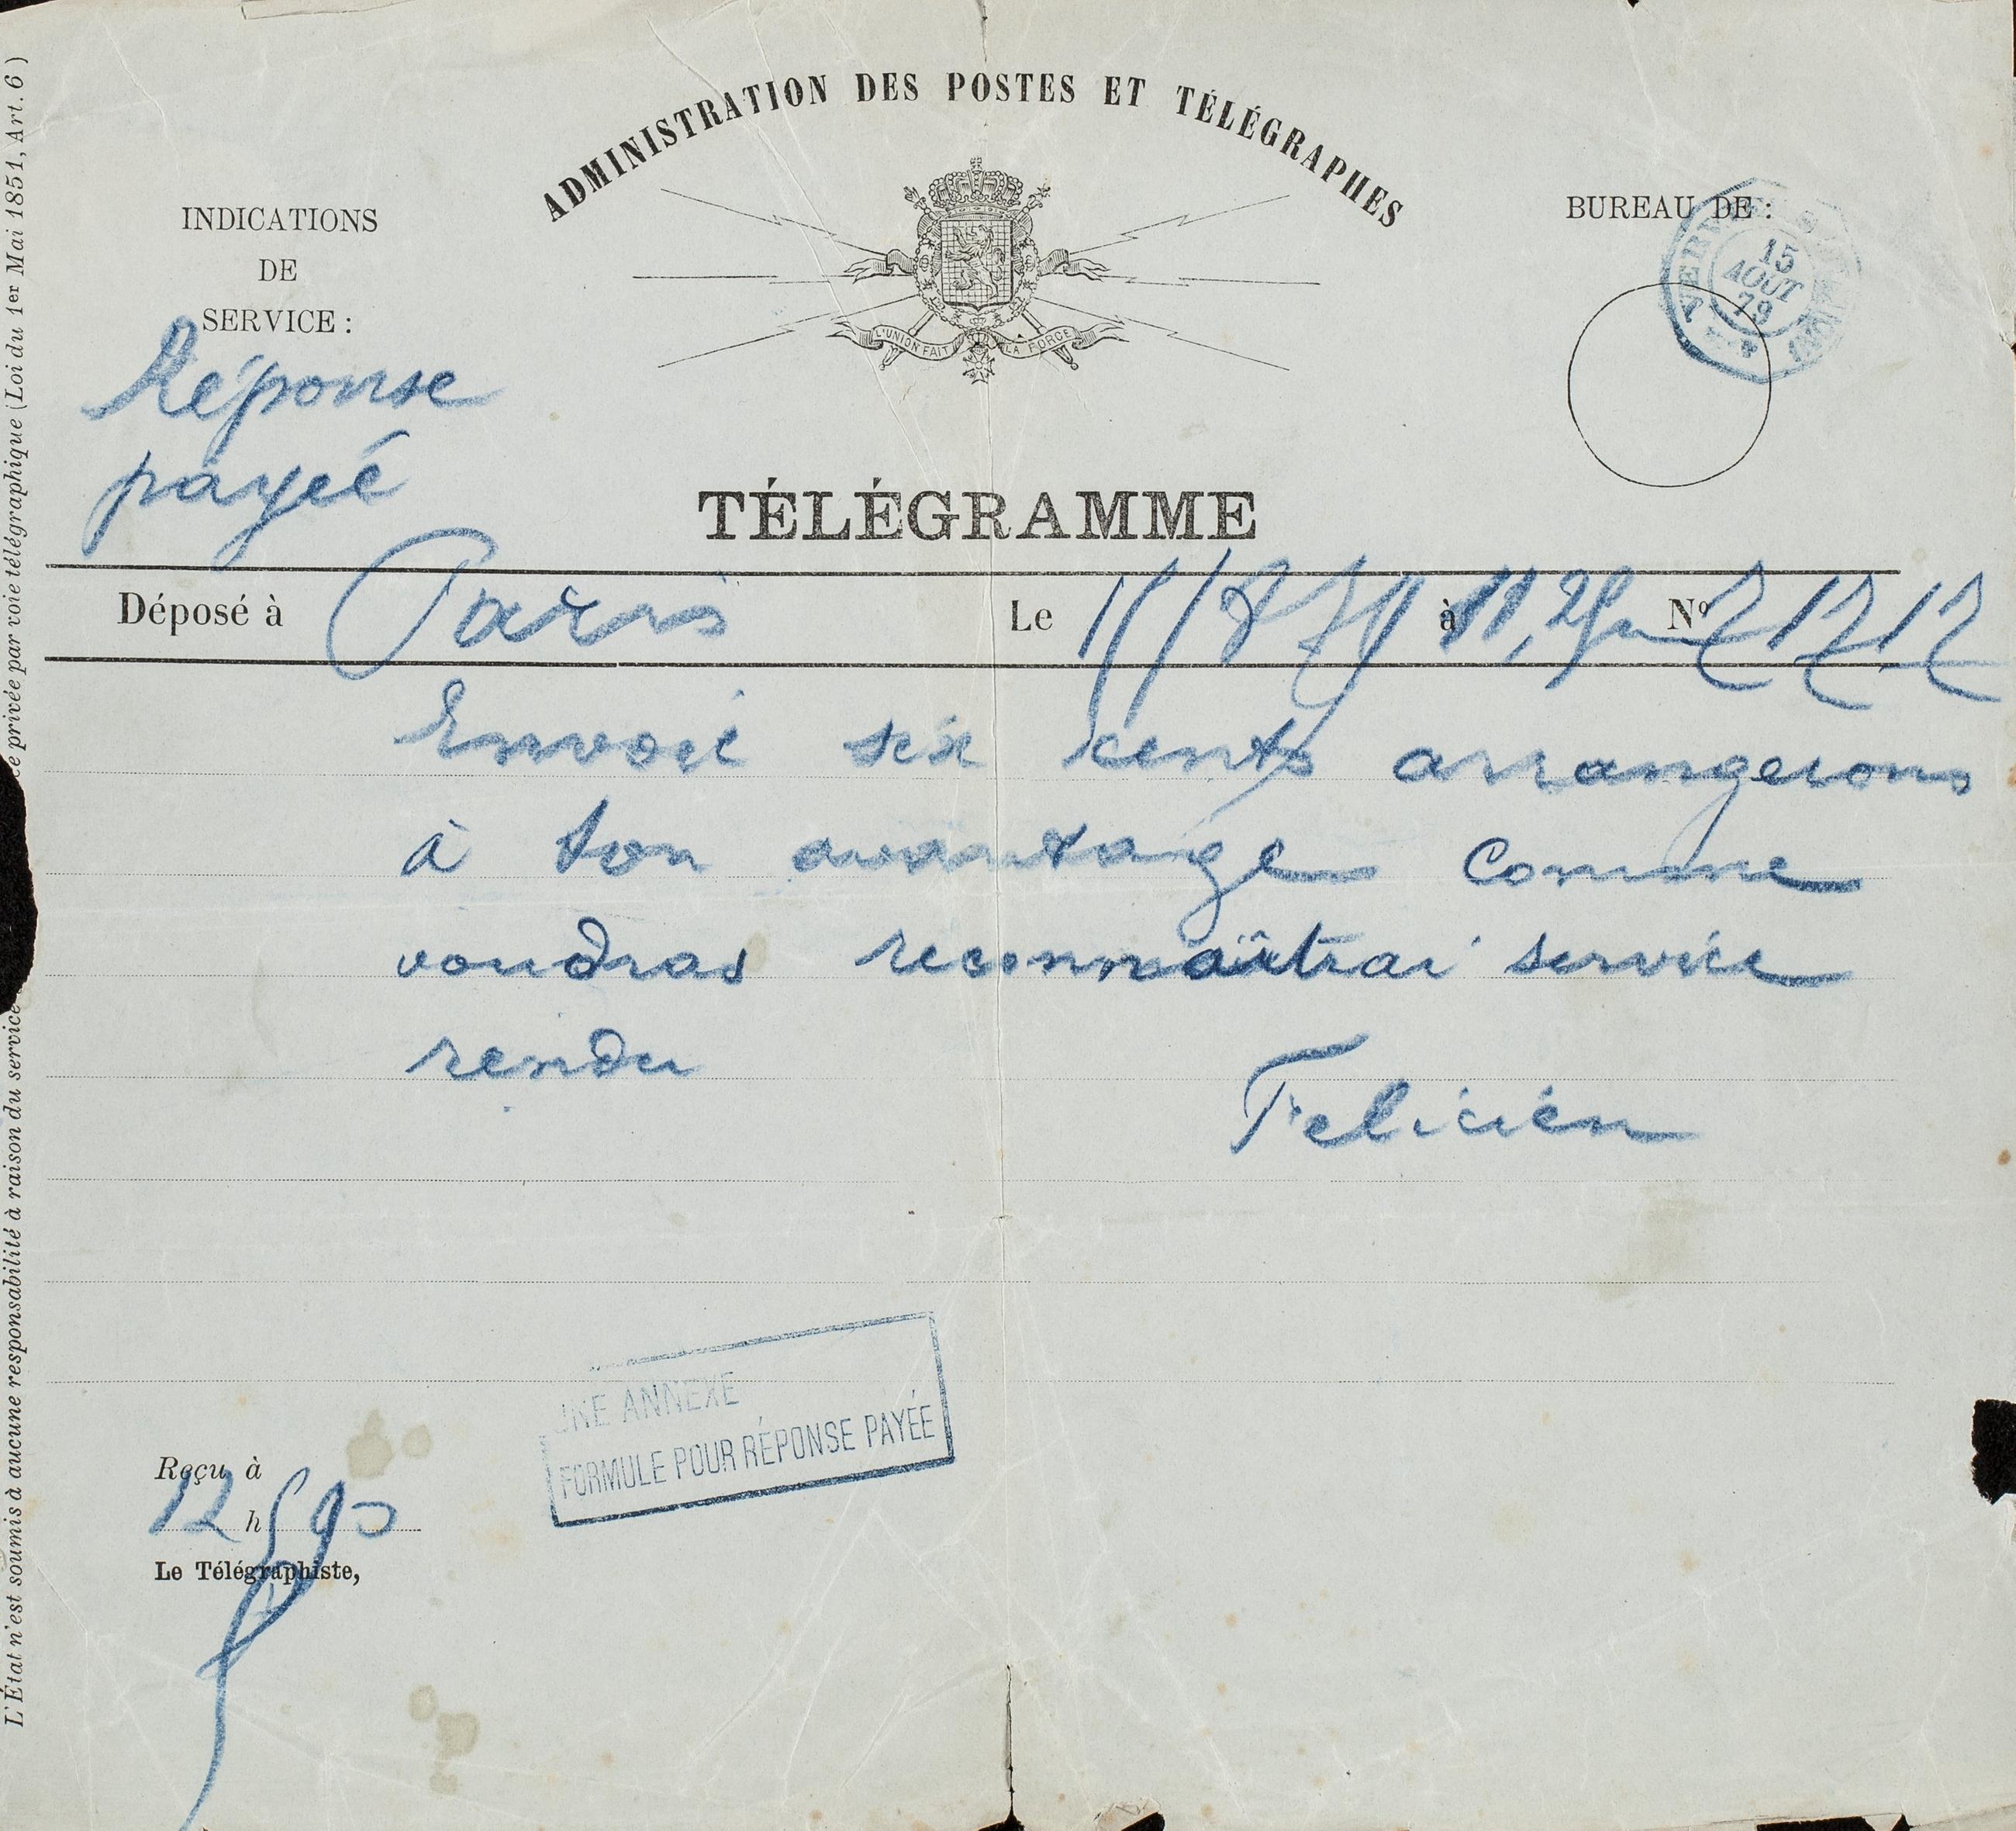 ADMINISTRATION DES POSTES ET TÉLÉGRAPHES
INDICATIONS
DE
SERVICE :
Réponse
payeé
L'UNION FAIT LA FORCE
BUREAU DE :
15
AOUT
79
TÉLÉGRAMME
Déposé à Paris Le 15/8 79 à 11, Nº
Envoie six cents arrangerons
à ton avantage comme
voudras reconnaîtrai service
rendu
Felicien
UNE ANNEXE
FORMULE POUR RÉPONSE PAYÉE
Reçu à
12 h
Le Télégraphiste,
L'État n'est soumis à aucune responsabilité à raison du service
privée par voie télégraphique (Loi du 1er Mai 1851, Art. 6 )